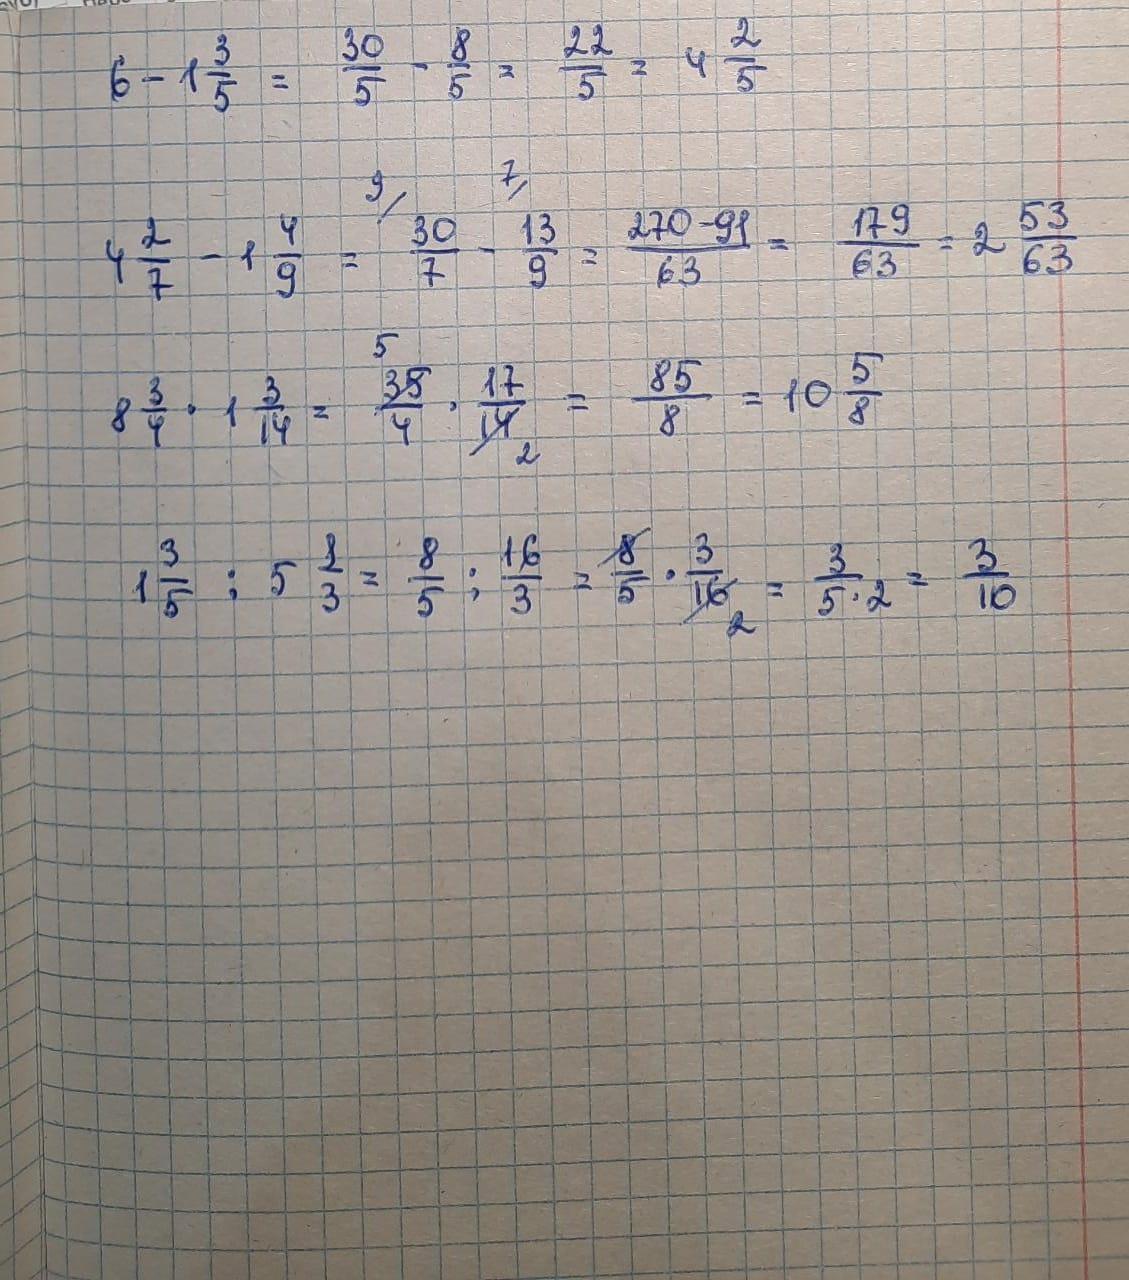 6 - 1 3/5 = 30/5 - 8/5 = 22/5 = 4 2/5
4 2/7 - 1 4/9 = 9/ 30/7 - 7/ 13/9 = 270-91/63 = 179/63 = 2 53/63
8 3/4 · 1 3/14 = 5 35/4 · 17/14 2 = 85/8 = 10 5/8
1 3/5 : 5 1/3 = 8/5 : 16/3 = 8/5 · 3/16 2 = 3/5·2 = 3/10